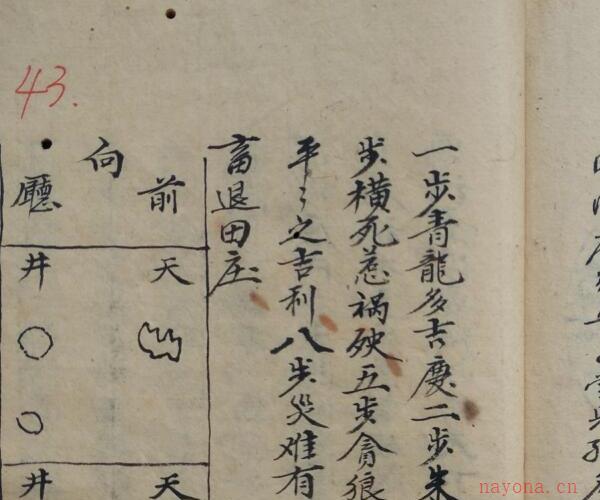 43.
一步青龍多吉慶二步朱
步橫死惹祸殃五步貪狼
平〻之吉利八步災难有
畜退田庄
前
向
廳
天
井
天
井
nayona.cn